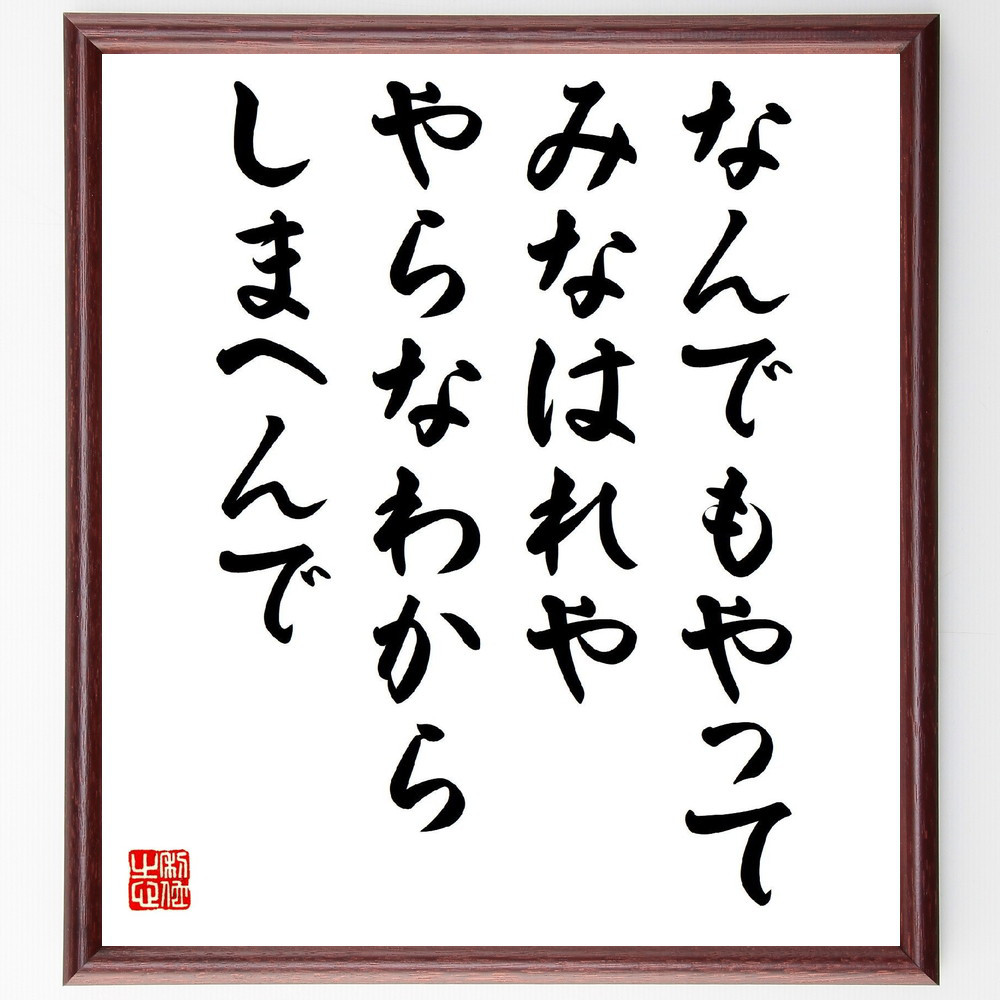 なんでもやって
みなはれや
やらなわから
しまへんで